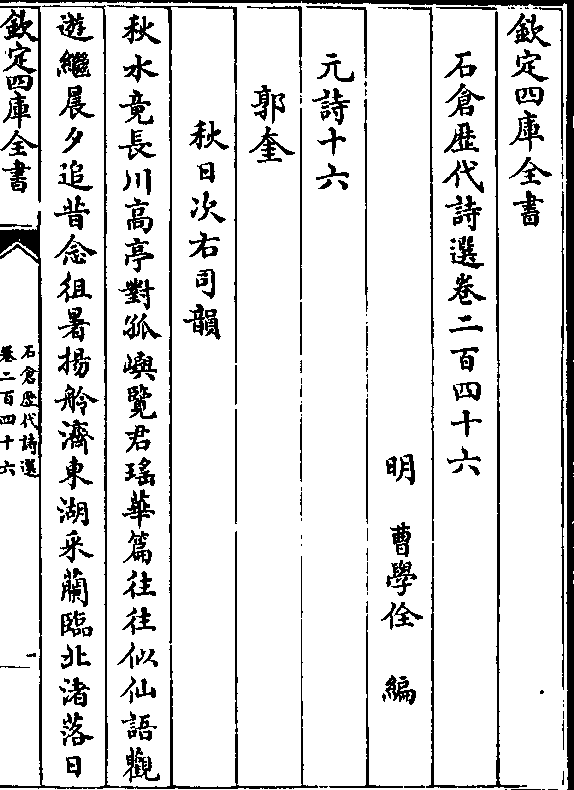 欽定四庫全書
石倉歴代詩選卷二百四十六
明 曹學佺 編
元詩十六
郭奎
秋日次右司韻
秋水竟長川高亭對孤嶼覽君瑤華篇往往似仙語觀
遊繼晨夕追昔念徂暑揚舲濟東湖采蘭臨北渚落日
欽定四庫全書
石倉歴代詩選
卷二百四十六
一